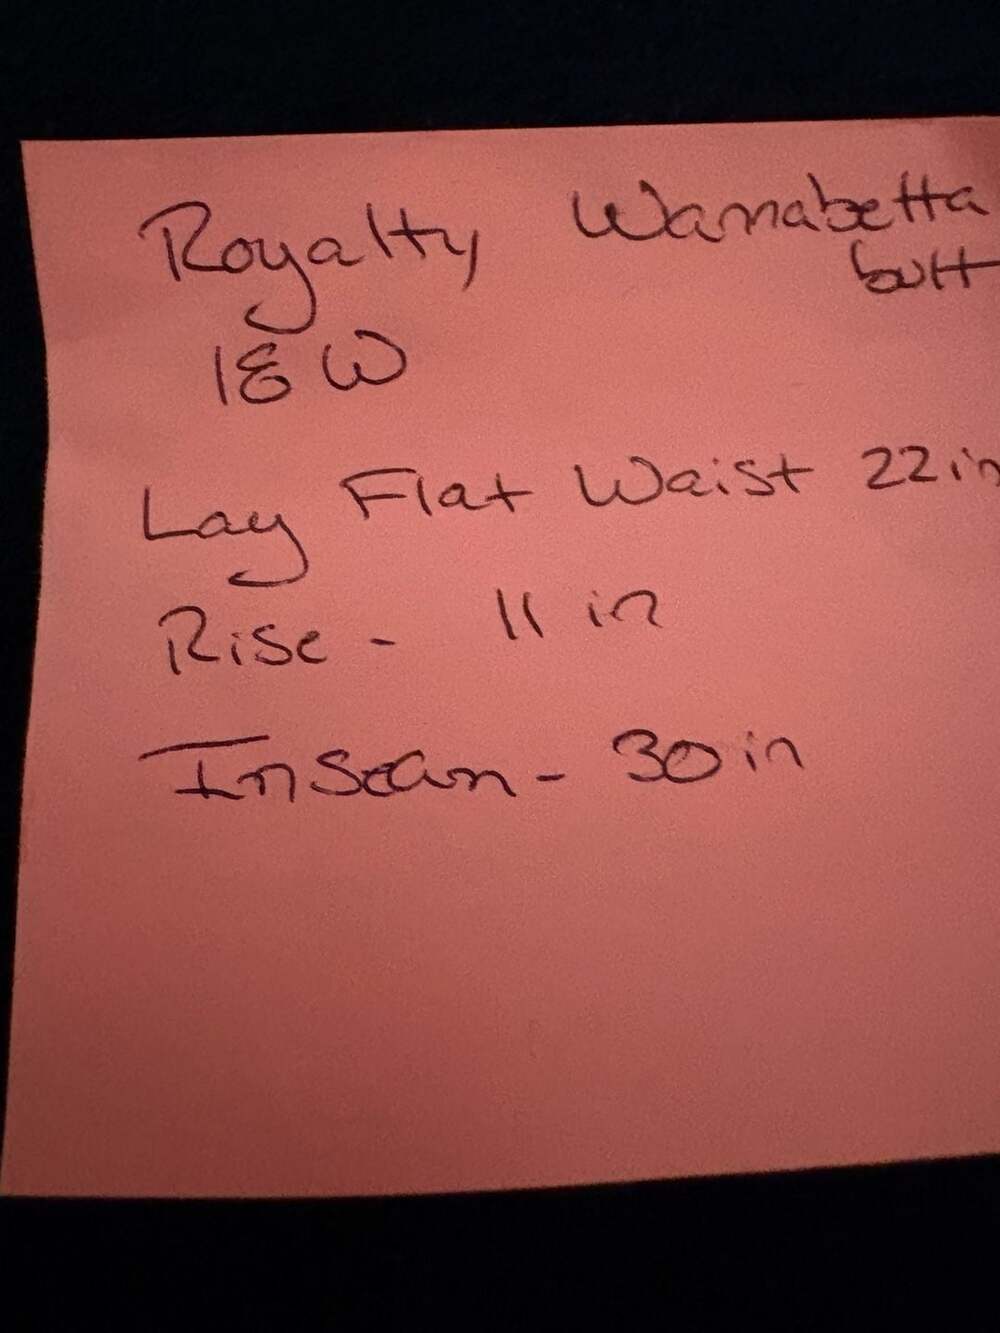 Royalty Wannabetta
butt
18 W
Lay Flat Waist 22in
Rise - 11 in
Inseam - 30 in